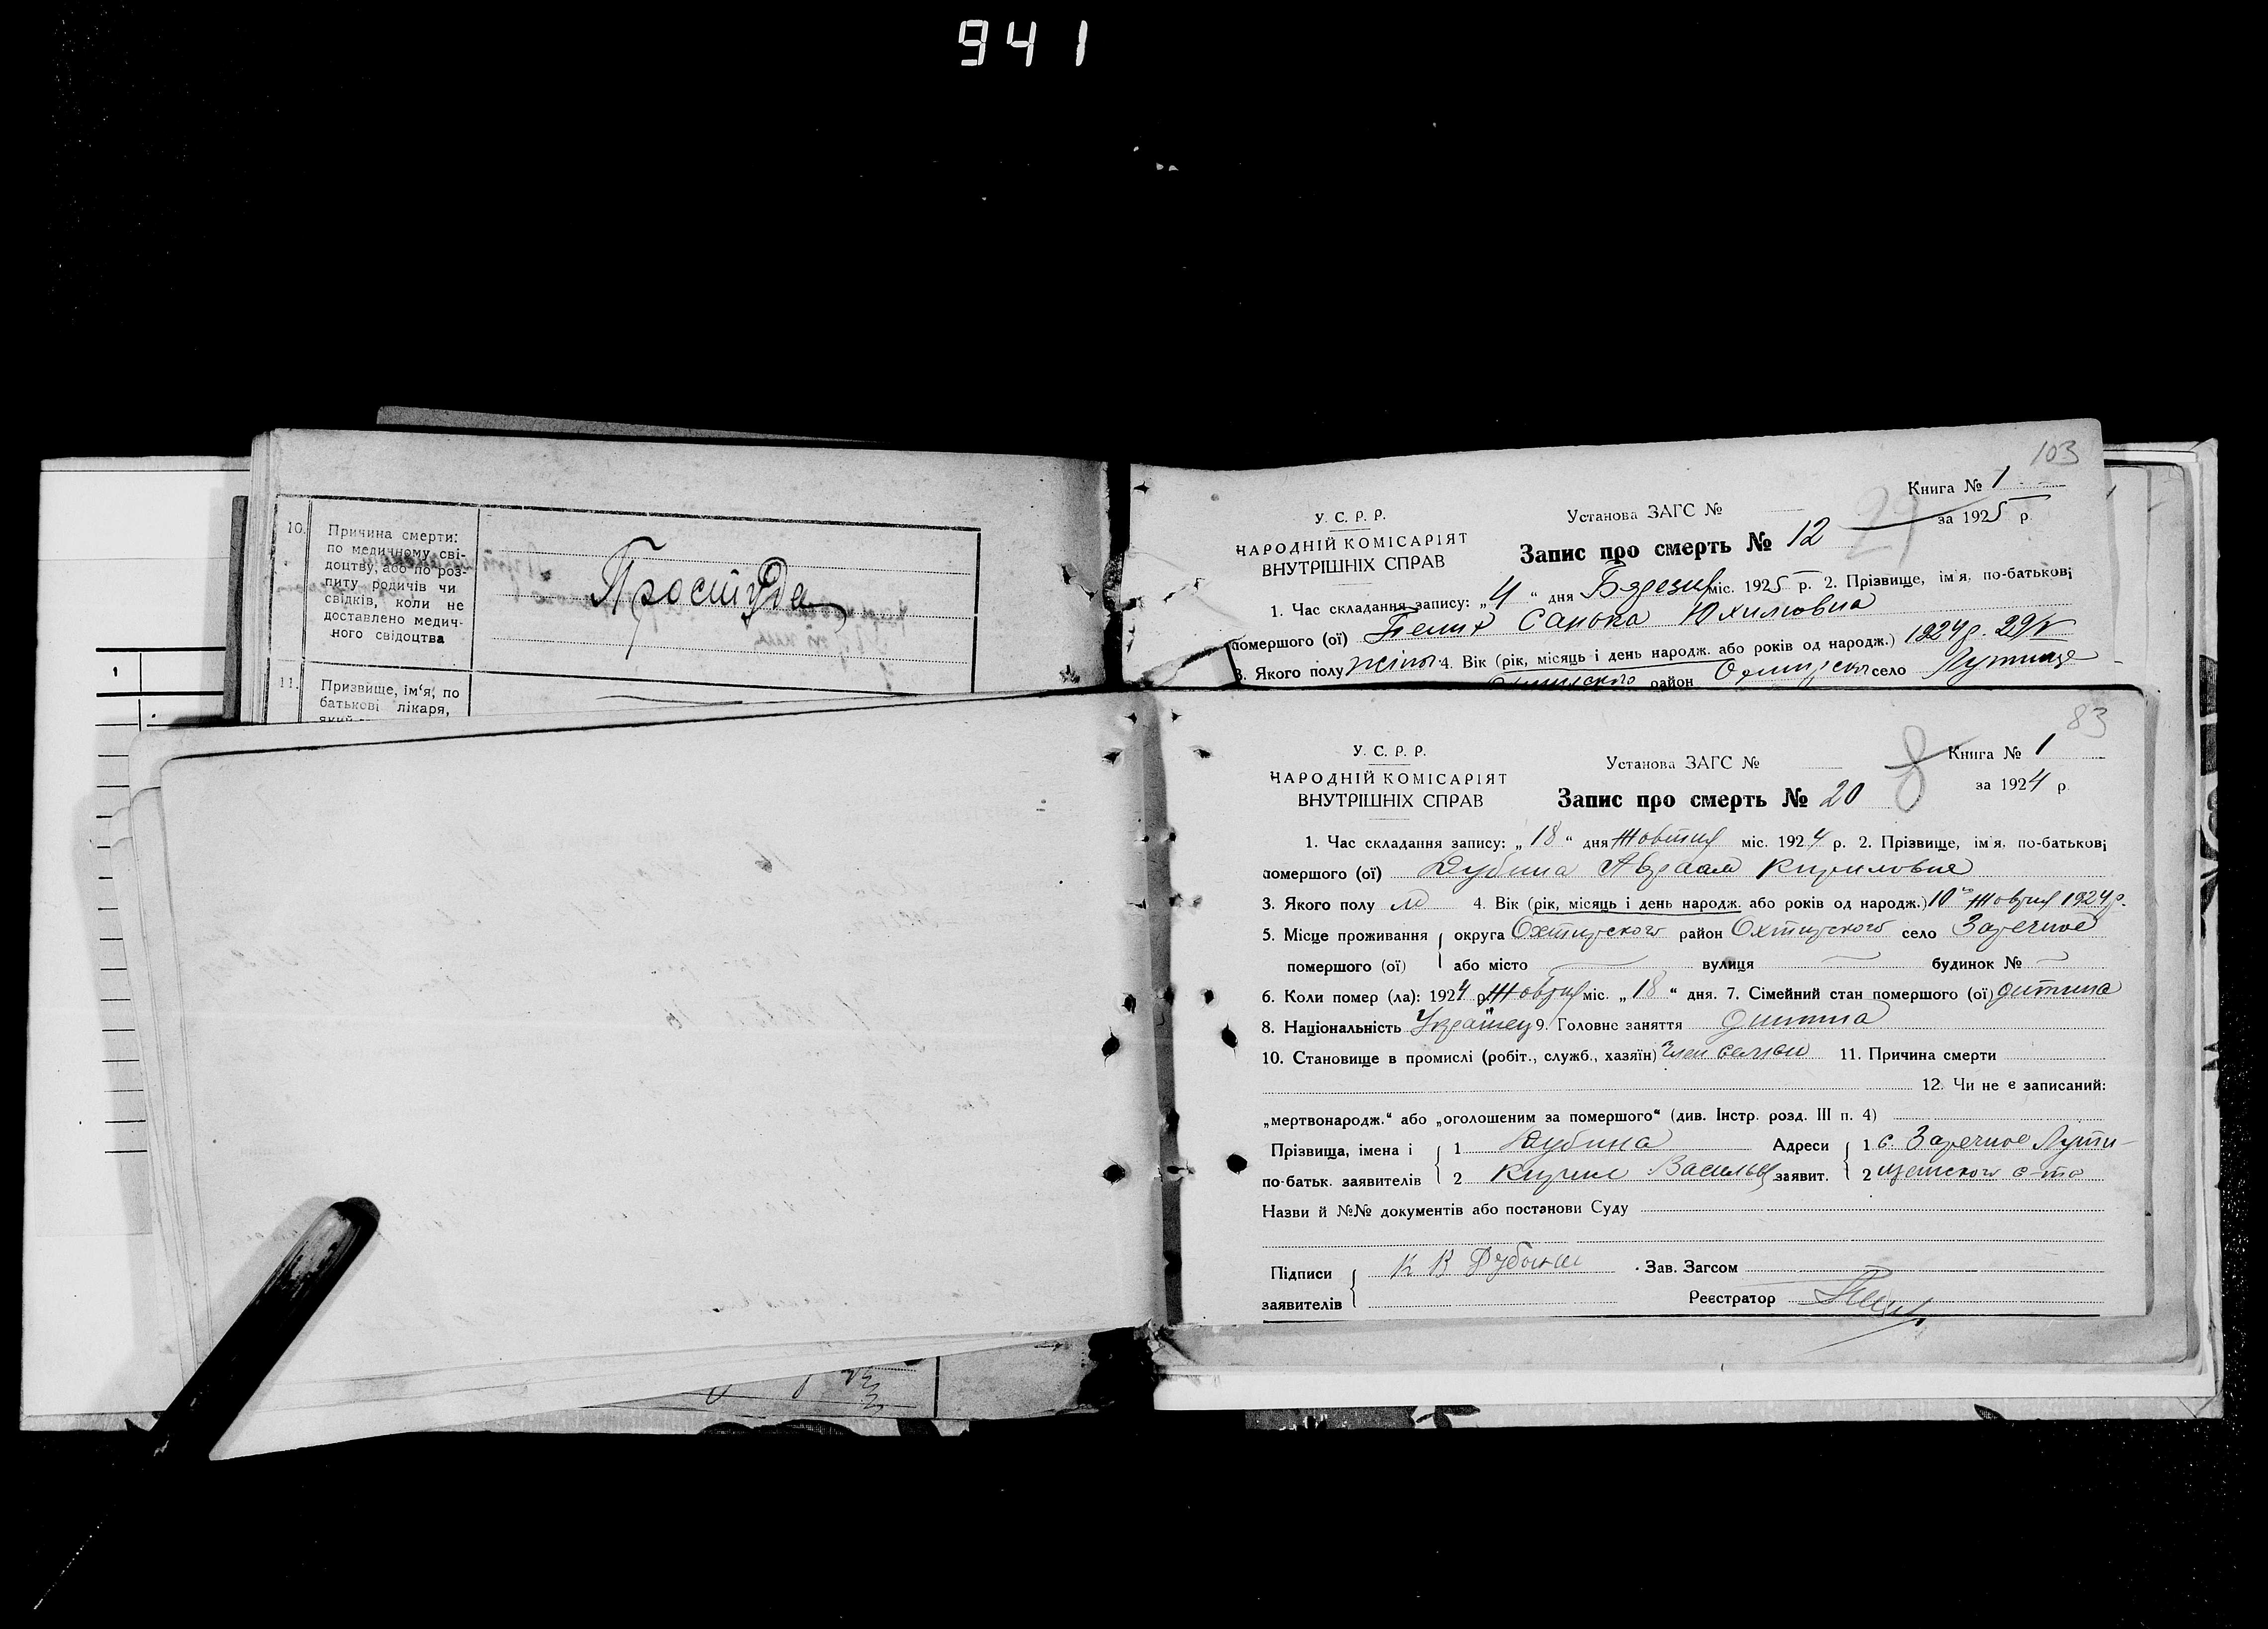 941
10. Причина смерти:
по медичному сві-
доцтву, або по роз-
питу родичів чи
свідків, коли не
доставлено медич-
ного свідоцтва
Простуда
11. Призвище, ім'я, по
батькові лікаря,
103
Книга № 1
У. С. Р. Р.
Установа ЗАГС №
за 1925 р.
НАРОДНІЙ КОМІСАРІЯТ
ВНУТРІШНІХ СПРАВ
Запис про смерть № 12 29
1. Час складання запису: „4“ дня міс. 1925 р. 2. Прізвище, ім'я, по-батькові
помершого (ої) Санька Юхимовна
3. Якого полу 4. Вік (рік, місяць і день народж. або років од народж.) 1924 р. 29/V
район село
83
У. С. Р. Р.
Установа ЗАГС №
Книга № 1
НАРОДНІЙ КОМІСАРІЯТ
ВНУТРІШНІХ СПРАВ
Запис про смерть № 20 8
за 1924 р.
1. Час складання запису: „18“ дня Жовтня міс. 1924 р. 2. Прізвище, ім'я, по-батькові
помершого (ої) Дубина Авраам Кирилович
3. Якого полу м 4. Вік (рік, місяць і день народж. або років од народж.) 10 1924 р.
5. Місце проживання округа Охтирского район Охтирского село Заречное
помершого (ої) або місто вулиця будинок №
6. Коли помер (ла): 1924 р. міс. „18“ дня. 7. Сімейний стан помершого (ої) дитина
8. Національність Українец 9. Головне заняття дитина
10. Становище в промислі (робіт., служб., хазяїн) член семьи 11. Причина смерти
12. Чи не є записаний:
„мертвонародж.“ або „оголошеним за помершого“ (див. Інстр. розд. III п. 4)
Прізвища, імена і 1 Дубина Адреси 1 с. Заречное Лути-
по-батьк. заявителів 2 Кирил Василье заявит. 2 щанского с-та
Назви й №№ документів або постанови Суду
Підписи К В Дубина Зав. Загсом
заявителів Реєстратор